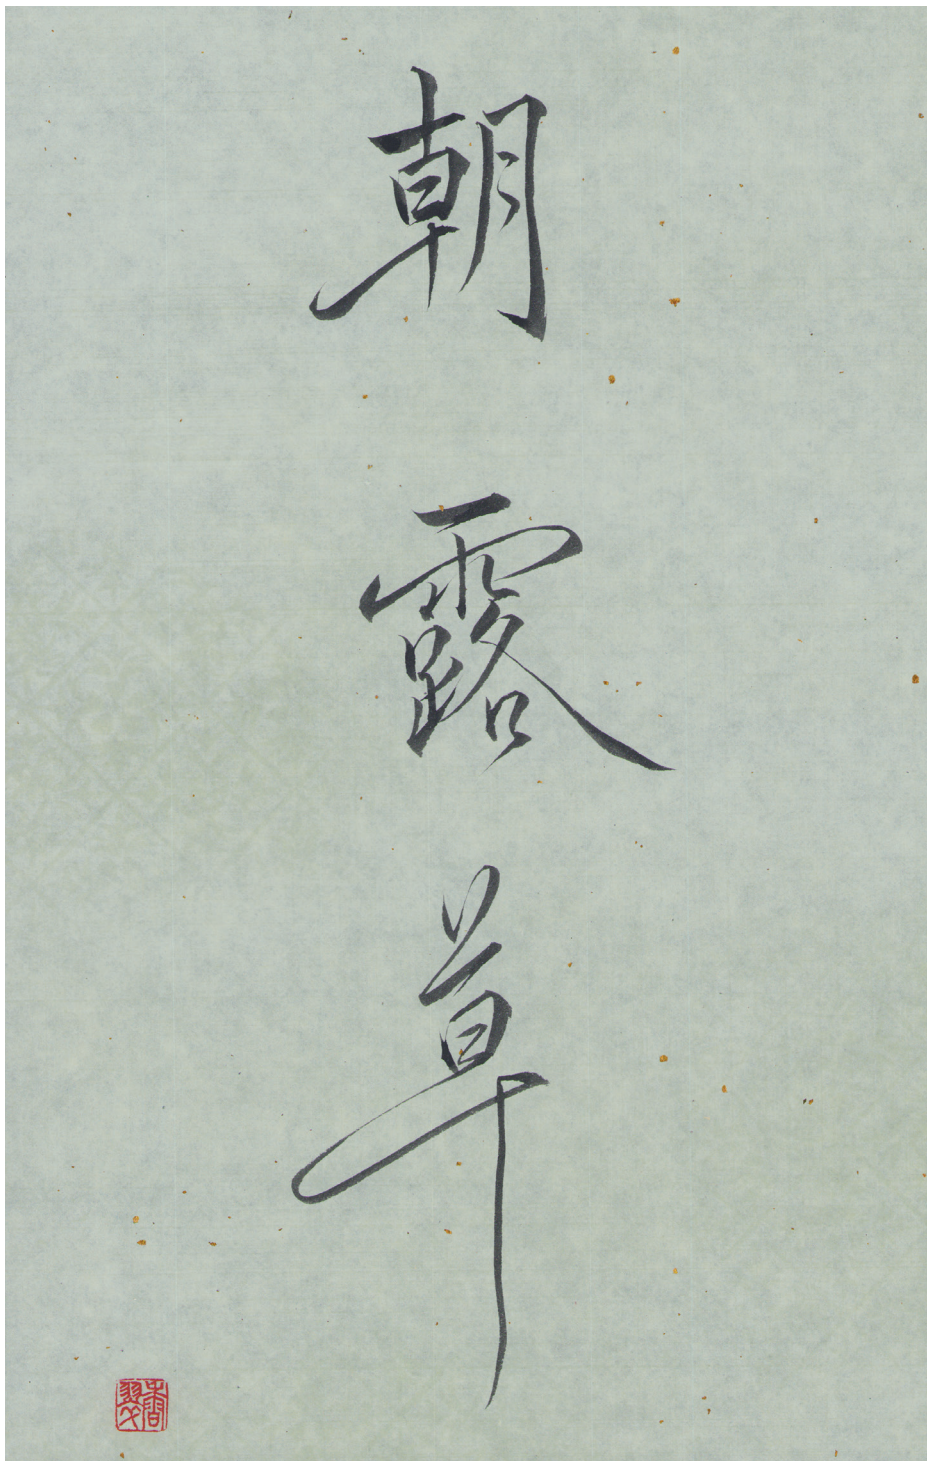 朝露草